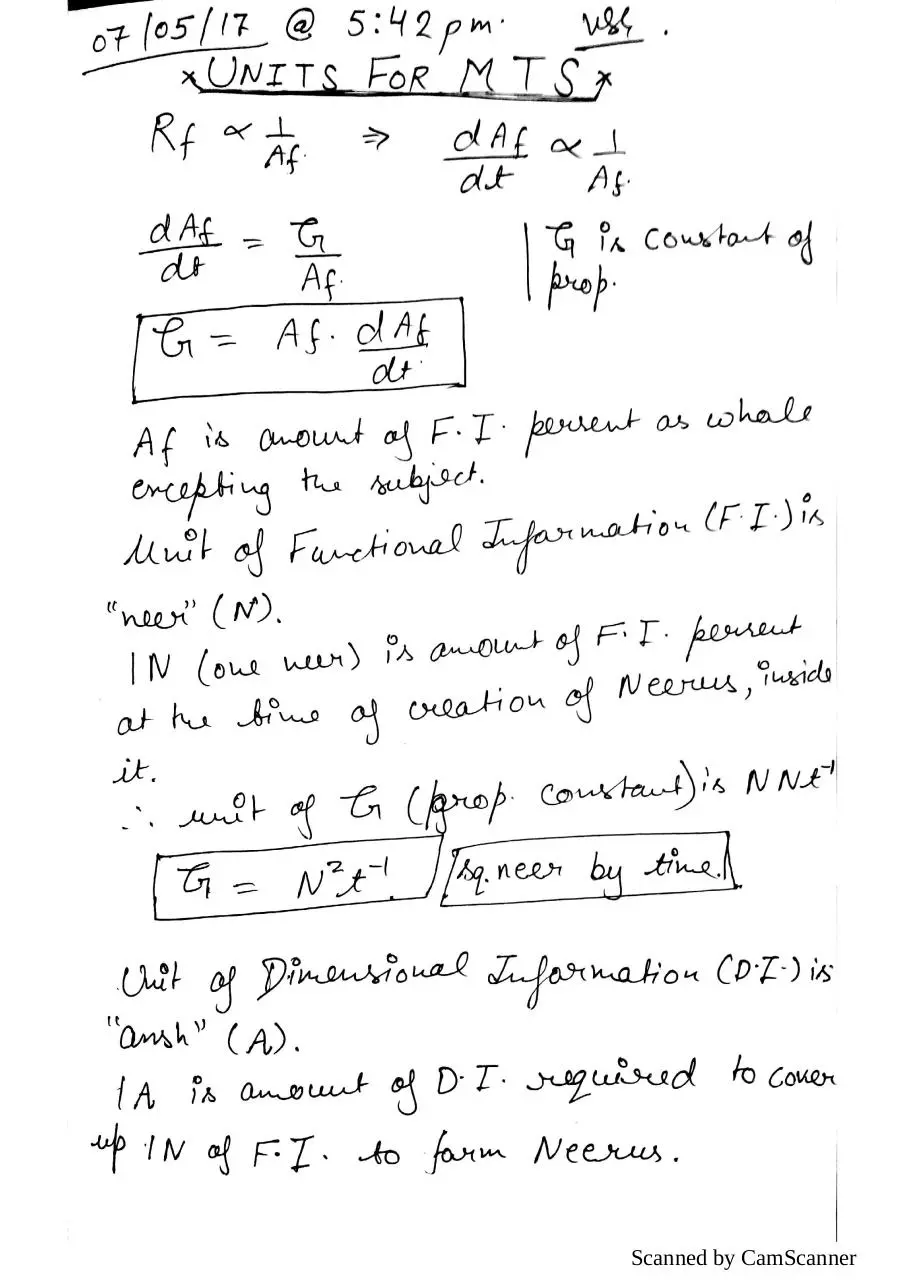 07/05/17 @ 5:42 pm.
*UNITS FOR MTS*
Rf ∝ 1/Af. ⇒ dAf/dt ∝ 1/Af.
dAf/dt = G/Af. | G is constant of prop.
G = Af. dAf/dt.
Af is amount of F.I. persent as whole
excepting the subject.
Unit of Functional Information (F.I.) is
"neer" (N).
1N (one neer) is amount of F.I. persent
at the time of creation of Neerus, inside
it.
∴ unit of G (prop. constant) is N N t⁻¹
G = N²t⁻¹ / sq. neer by time.
Unit of Dimensional Information (D.I.) is
"ansh" (A).
1A is amount of D.I. required to cover
up 1N of F.I. to form Neerus.
Scanned by CamScanner